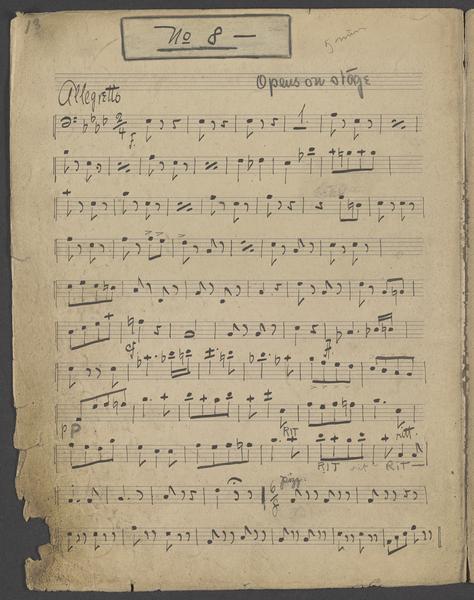 13
No 8 —
5 min
Opens on stage
Allegretto
2/4
f.
1.
cf
f.
pp
RIT
ritt.
RIT RIT —
6/8 pizz.